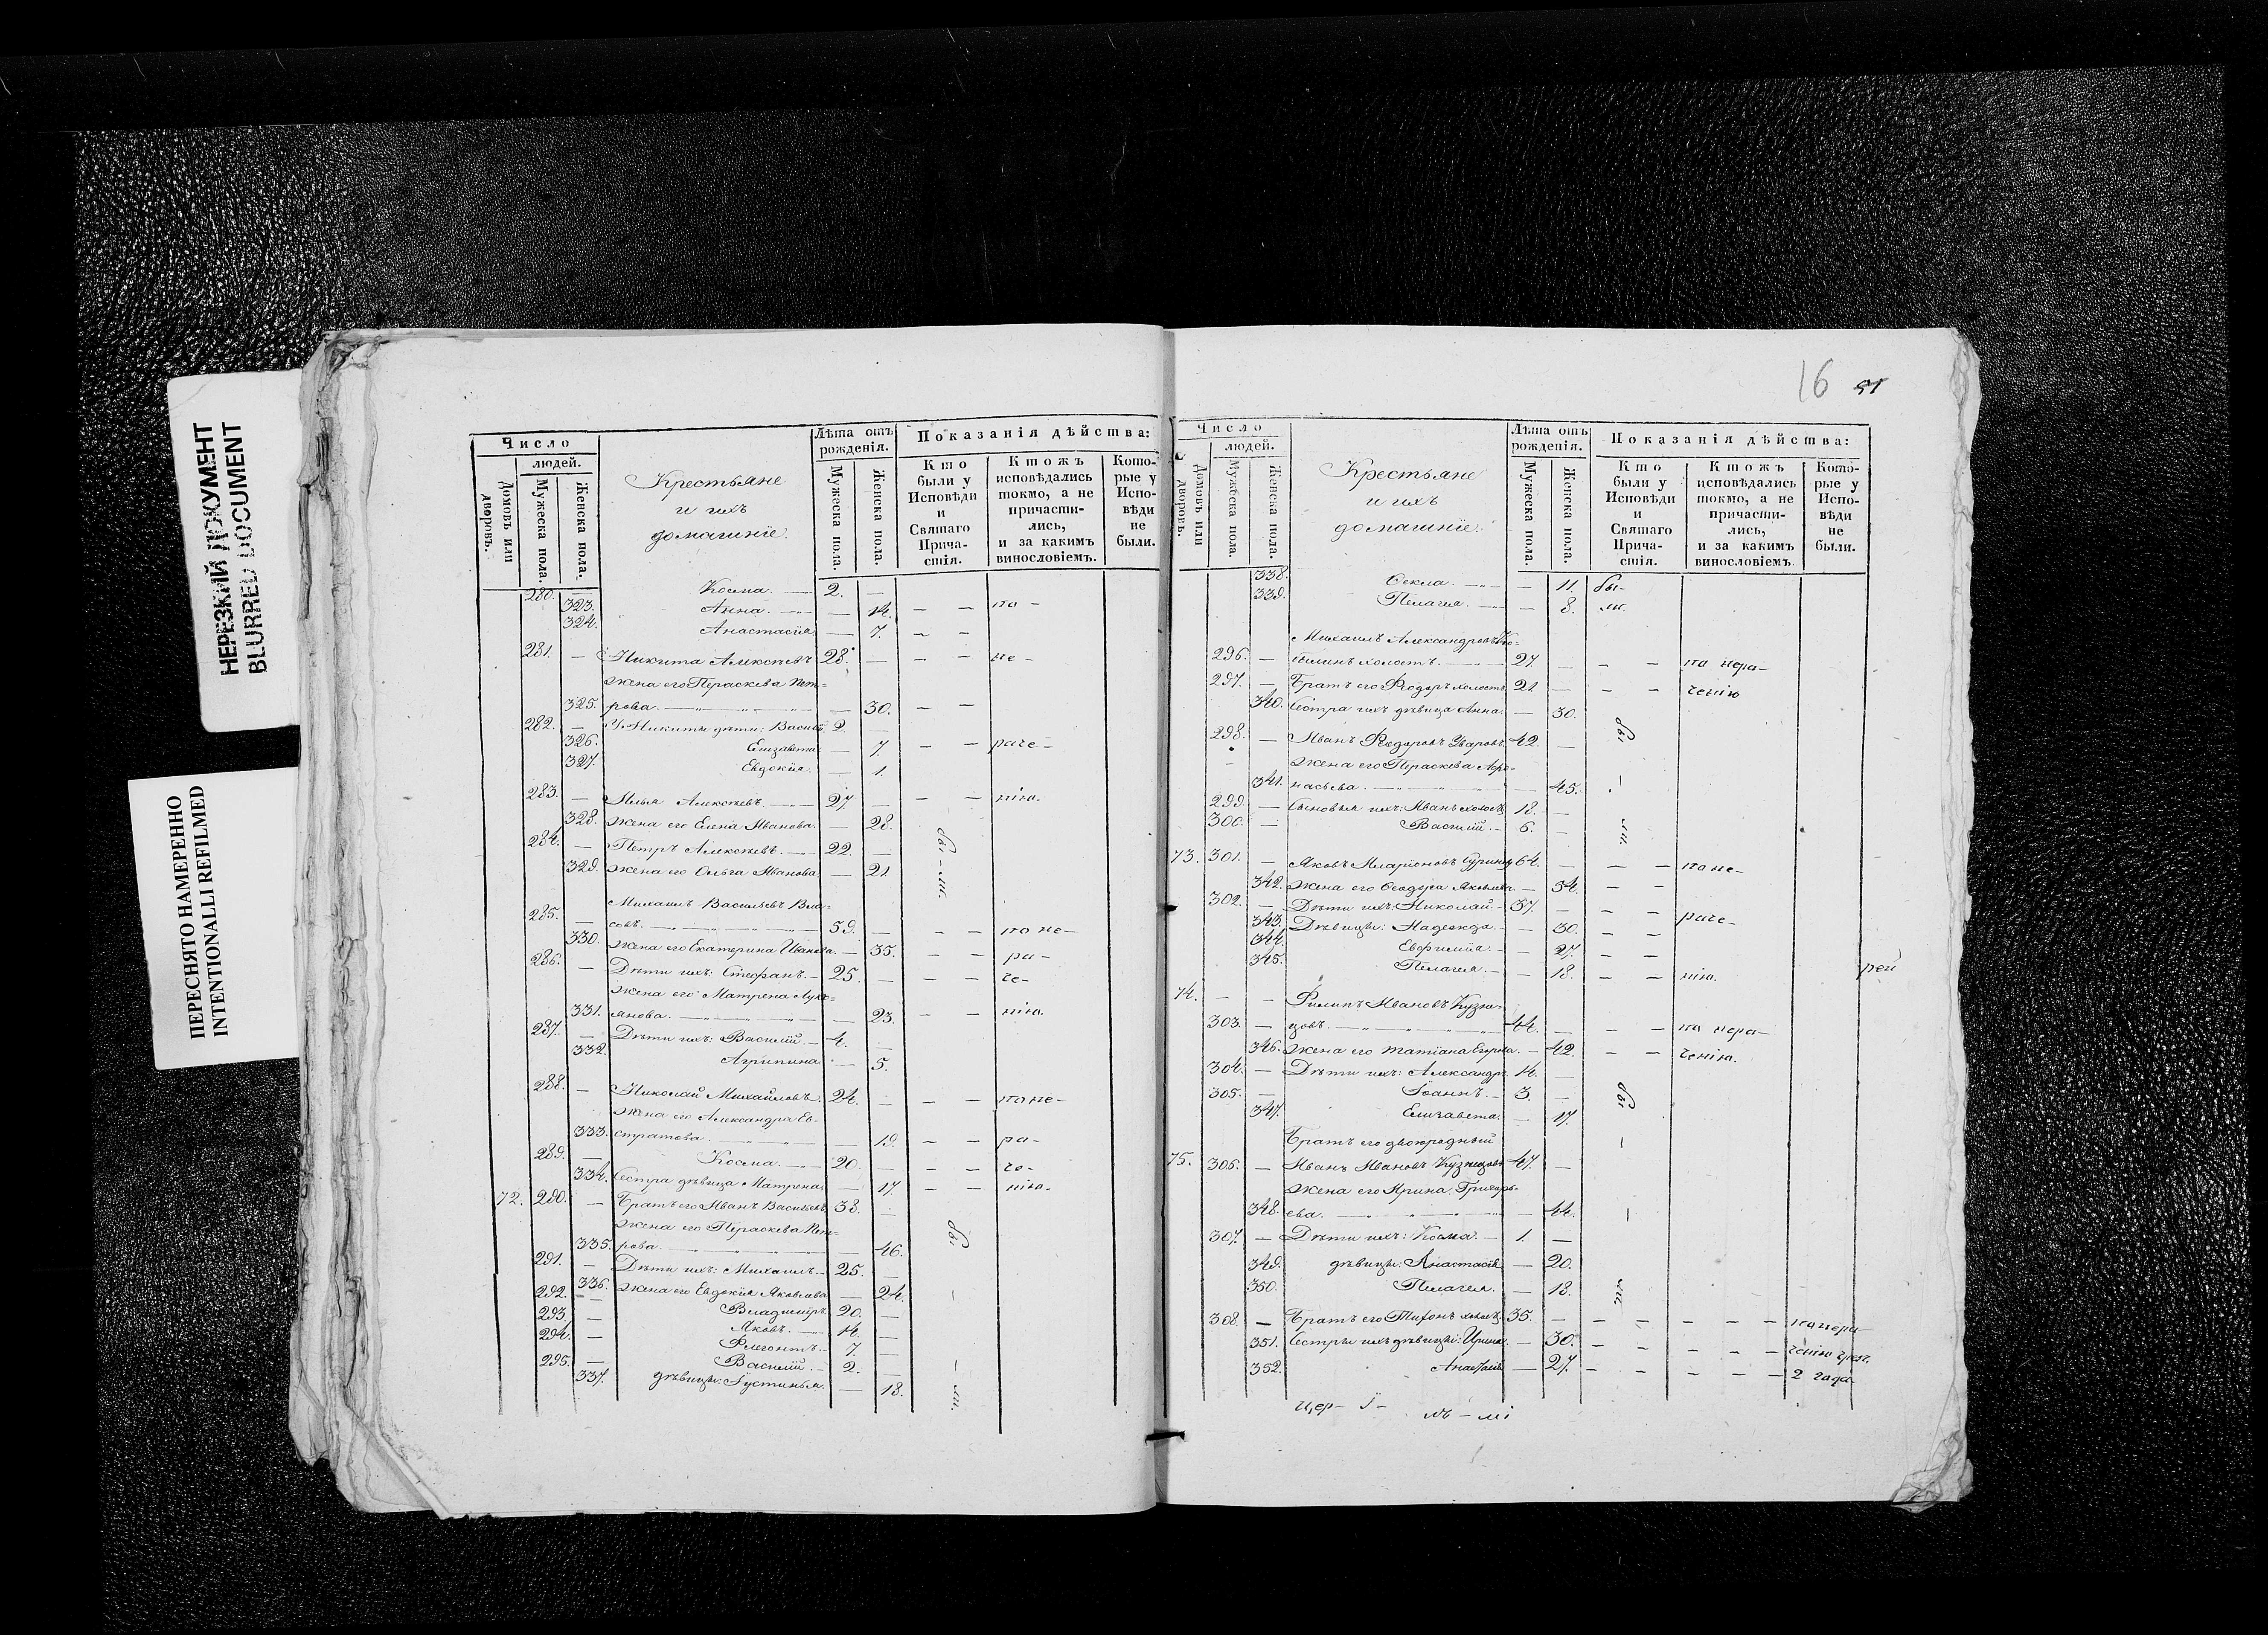 НЕРЕЗКИЙ ДОКУМЕНТ
BLURRED DOCUMENT
ПЕРЕСНЯТО НАМЕРЕННО
INTENTIONALLI REFILMED
Число
людей.
Домовъ или дворовъ.
Мужеска пола.
Женска пола.
Крестьяне
и ихъ
домашніе.
Лѣта отъ рожденія.
Мужеска пола.
Женска пола.
Показанія дѣйства:
Кто были у Исповѣди и Святаго Прича- стія.
Ктожъ исповѣдались токмо, а не причасти- лись, и за какимъ винословіемъ.
Кото- рые у Испо- вѣди не были.
280. — Косма. — 2. —
323. Анна. — — 14. — — по —
324. Анастасія. — 7. — —
281. — Никита Алексѣевъ 28. — — — не —
жена его Пераскева Пет=
325. рова. — — 30. — —
282. — У Никиты дѣти: Василій 2. —
326. Елизавета — 7. — — раче —
327. Евдокія. — 1.
283. — Илья Алексѣевъ. — 27. — — — нію.
328. жена его Елена Иванова. — 28.
284. — Петръ Алексѣевъ. — 22. — бы — ли.
329. жена его Ольга Иванова — 21
Михаилъ Васильевъ Вла=
285. — совъ. — 59. — — — по не —
330. жена его Екатерина Иванова. — 35. — — ра —
286. — Дѣти ихъ: Стефанъ. — 25. — — — че —
жена его Матрена Лукі=
331. янова. — — 23. — — нію.
287. — Дѣти ихъ: Василій — 4. —
332. Агрипина — 5.
288. — Николай Михайловъ. 24. — — — по не —
жена его Александра Ев=
333. стратова. — — 19. — — ра —
289. — Косма. — 20. — — — че —
334. Сестра дѣвица Матрена. — 17. — — нію.
72. 290. — Братъ его Иванъ Васильевъ 38. —
жена его Пераскева Пет=
335. рова. — — 46. бы
291. — Дѣти ихъ: Михаилъ. — 25. —
336. жена его Евдокія Яковлева — 24. —
292. — Владимиръ 20. —
293. — Яковъ. — 14. —
294. — Флегонтъ. — 7. —
295. — Василій. — 2. — —
337. дѣвицы: Іустинья. — 18. ли.
16 51
Число
людей.
Домовъ или дворовъ.
Мужеска пола.
Женска пола.
Крестьяне
и ихъ
домашніе.
Лѣта отъ рожденія.
Мужеска пола.
Женска пола.
Показанія дѣйства:
Кто были у Исповѣди и Святаго Прича- стія.
Ктожъ исповѣдались токмо, а не причасти- лись, и за какимъ винословіемъ.
Кото- рые у Испо- вѣди не были.
338. Ѳекла. — — 11. бы—
339. Пелагея. — — 8. ли.
Михаилъ Александровъ Ко=
296. — былинъ холостъ. — 27. — — — по нера—
297. — Братъ его Ѳедоръ холостъ 21. — — — ченію
340. Сестра ихъ дѣвица Анна. — 30.
298. — Иванъ Ѳедоровъ Уваровъ. 42. — бы
жена его Пераскева Афо=
341. насьева. — — 45. —
299. — Сыновья ихъ: Иванъ холостъ 18. —
300. — Василій. — 6. — ли.
73. 301. — Яковъ Иларіоновъ Суринъ 64. — — — по не—
342. жена его Ѳеодора Яковлева. — 54. — —
302. — Дѣти ихъ: Николай. — 37. — — — раче—
343. Дѣвицы: Надежда. — — 30. — —
344. Евфимія. — — 27. — —
345. Пелагея. — — 18. — — нію.
рей
74. — — Филипъ Ивановъ Кузне=
303. — цовъ. — 44. — — — по нера—
346. жена его Татіана Егорова. — 42. — — ченію.
304. — Дѣти ихъ: Александръ 14. —
305. — Іоаннъ. — 3. — бы
347. Елизавета. — 17.
Братъ его двоюродный —
75. 306. — Иванъ Ивановъ Кузнецовъ 47. —
жена его Ирина Григорь=
348. ева. — — 44. —
307. — Дѣти ихъ: Косма. — 1. —
349. дѣвицы: Анастасія — 20.
350. Пелагея. — 18. ли.
308. — Братъ его Тихонъ холостъ 35. — — — — — — по нера—
351. Сестры ихъ дѣвицы: Ирина. — 30. — — — — — ченію чрезъ
352. Анастасія — 27. — — — — — 2 года.
цер— і— лъ — мі